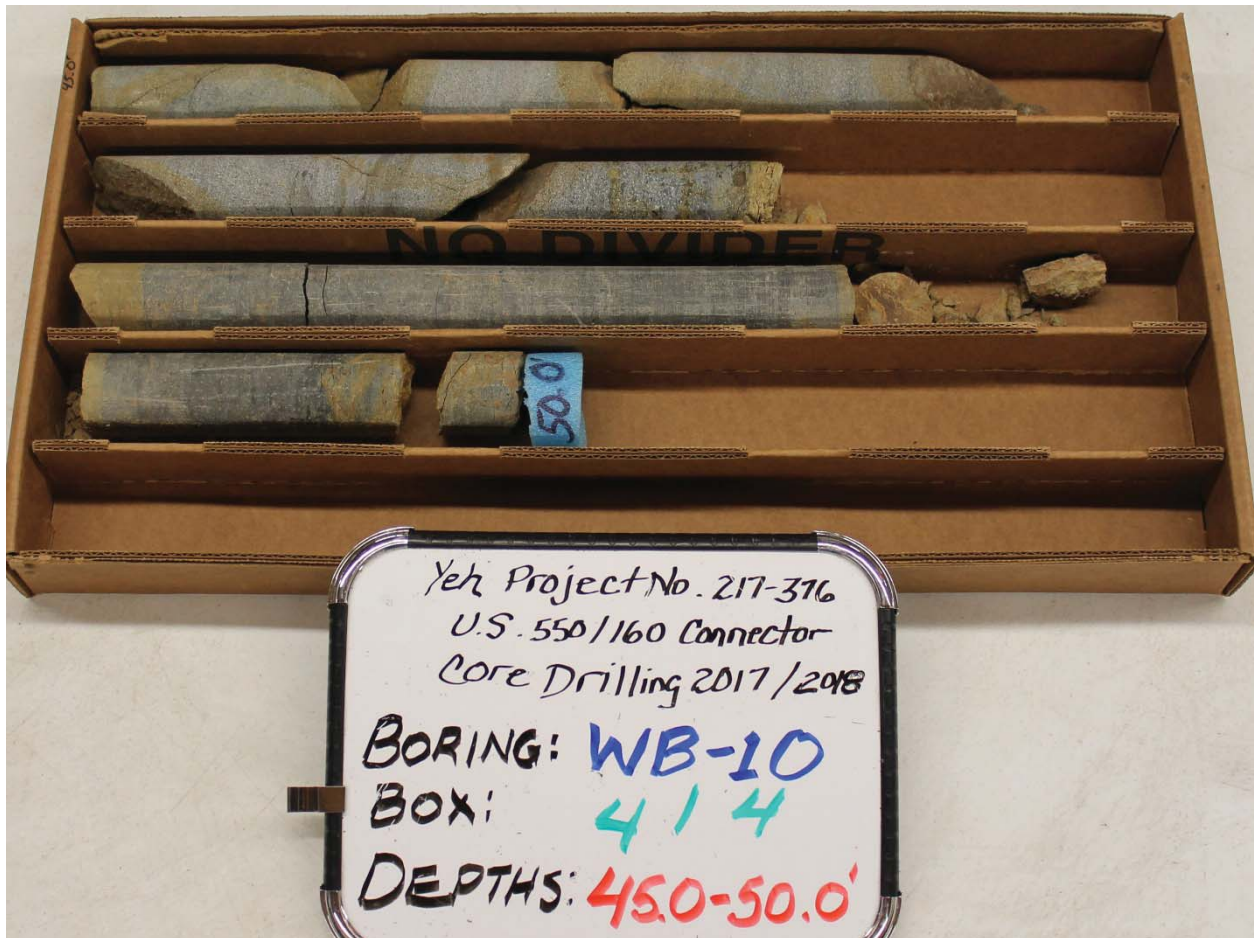 45.0'
NO DIVIDER
50.0'
Yeh Project No. 217-376
U.S. 550/160 Connector
Core Drilling 2017/2018
BORING: WB-10
BOX: 4/4
DEPTHS: 45.0-50.0'